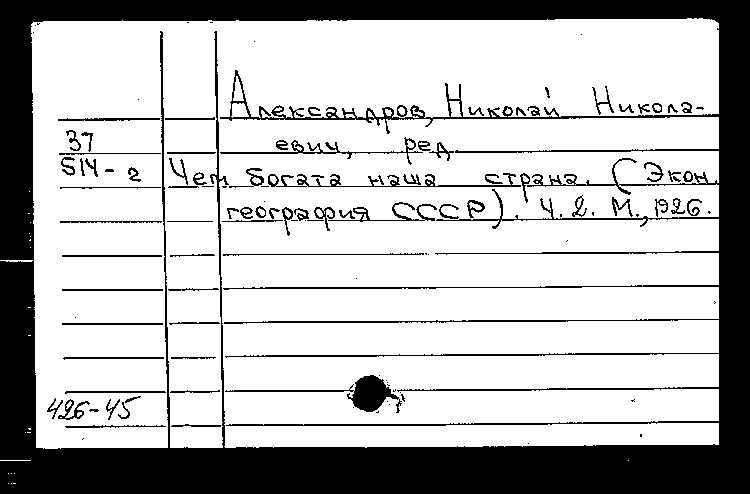 Александров, Николай Никола-
37 евич, ред.
514-г Чем богата наша страна. (Экон.
география СССР). Ч. 2. М., 1926.
426-45